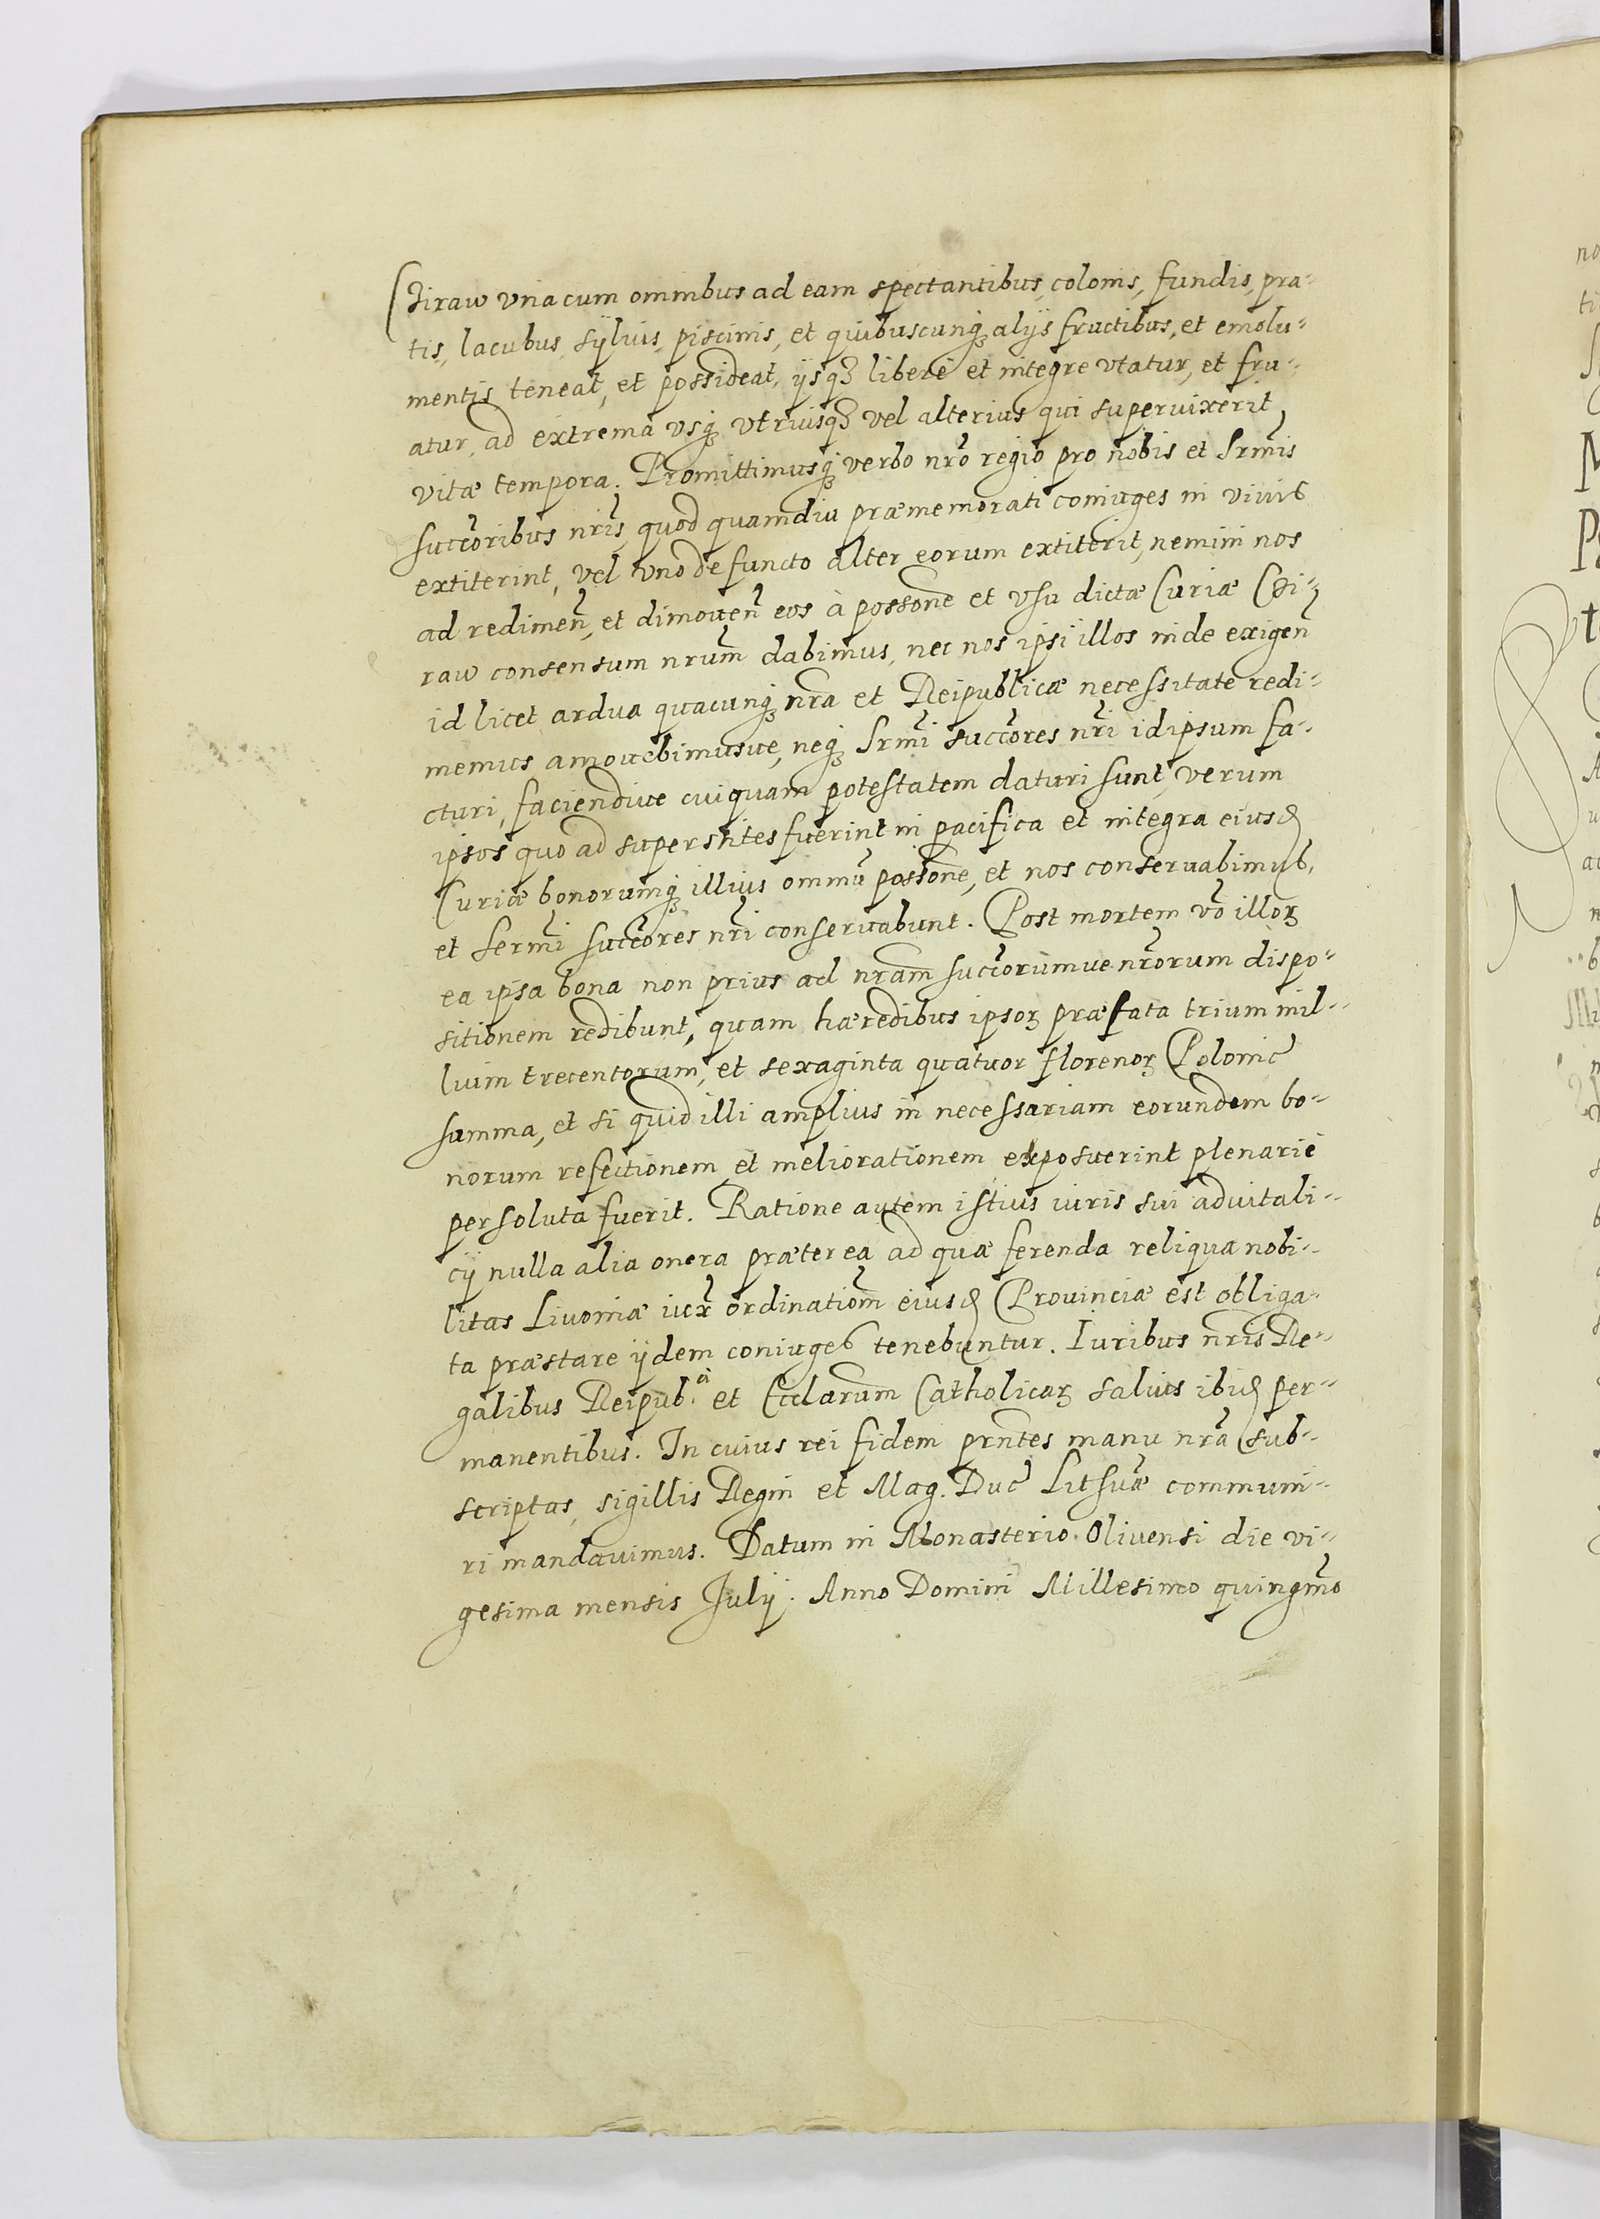 Cziraw vna cum omnibus ad eam spectantibus, colonis, fundis, pra-
tis, lacubus, sÿluis, piscinis, et quibuscunqꝫ alijs fructibus, et emolu-
mentis teneat, et possideat, ijsqꝫ liberè et integre vtatur, et fru-
atur, ad extrema vsqꝫ vtriusqꝫ vel alterius qui superuixerit
vitæ tempora. Promittimusqꝫ verbo nr̃o regio pro nobis et Sr̃mis
succc̃oribus nr̃is, quod quamdiu præmemorati coniuges in viuis
extiterint, vel vno defuncto alter eorum extiterit, nemini nos
ad redimen̄, et dimouen̄ eos à possõne et vsu dictæ Curiæ Czi-
raw consensum nr̃um dabimus, nec nos ipsi illos inde exigen̄
id licet ardua quacunqꝫ nr̃a et Reipublicæ necessitate redi-
memus amouebimusue, neqꝫ Sr̃mi succc̃ores nr̃i id ipsum fa-
cturi, faciendiue cuiquam potestatem daturi sunt, verum
ipsos quo ad superstites fuerint in pacifica et integra eiusd
Curiæ bonorumqꝫ illius omniũ possõne, et nos conseruabimus,
et Serm̃i succc̃ores nr̃i conseruabunt. Post mortem võ illoꝝ
ea ipsa bona non prius ad nr̃am succc̃orumue nr̃orum dispo-
sitionem redibunt, quam hæredibus ipsoꝝ præfata trium mil-
lium trecentorum, et sexaginta quatuor florenoꝝ Polonic̃
summa, et si quid illi amplius in necessariam eorundem bo-
norum refectionem et meliorationem exposuerint plenariè
persoluta fuerit. Ratione autem istius iuris sui aduitali-
cij nulla alia onera præterea ad quæ ferenda reliqua nobi-
litas Liuoniæ iux̃ ordinatiom̃ eiusd Prouinciæ est obliga-
ta præstare ijdem coniuges tenebuntur. Iuribus nr̃is Re-
galibus Reipub. et Ecclarum Catholicaꝝ saluis ibid per-
manentibus. In cuius rei fidem prñtes manu nr̃a sub-
scriptas, sigillis Regni et Mag. Duc̃ Lithuæ communi-
ri mandauimus. Datum in Monasterio Oliuensi die vi-
gesima mensis Julij. Anno Domini Millesimo quingm̃o